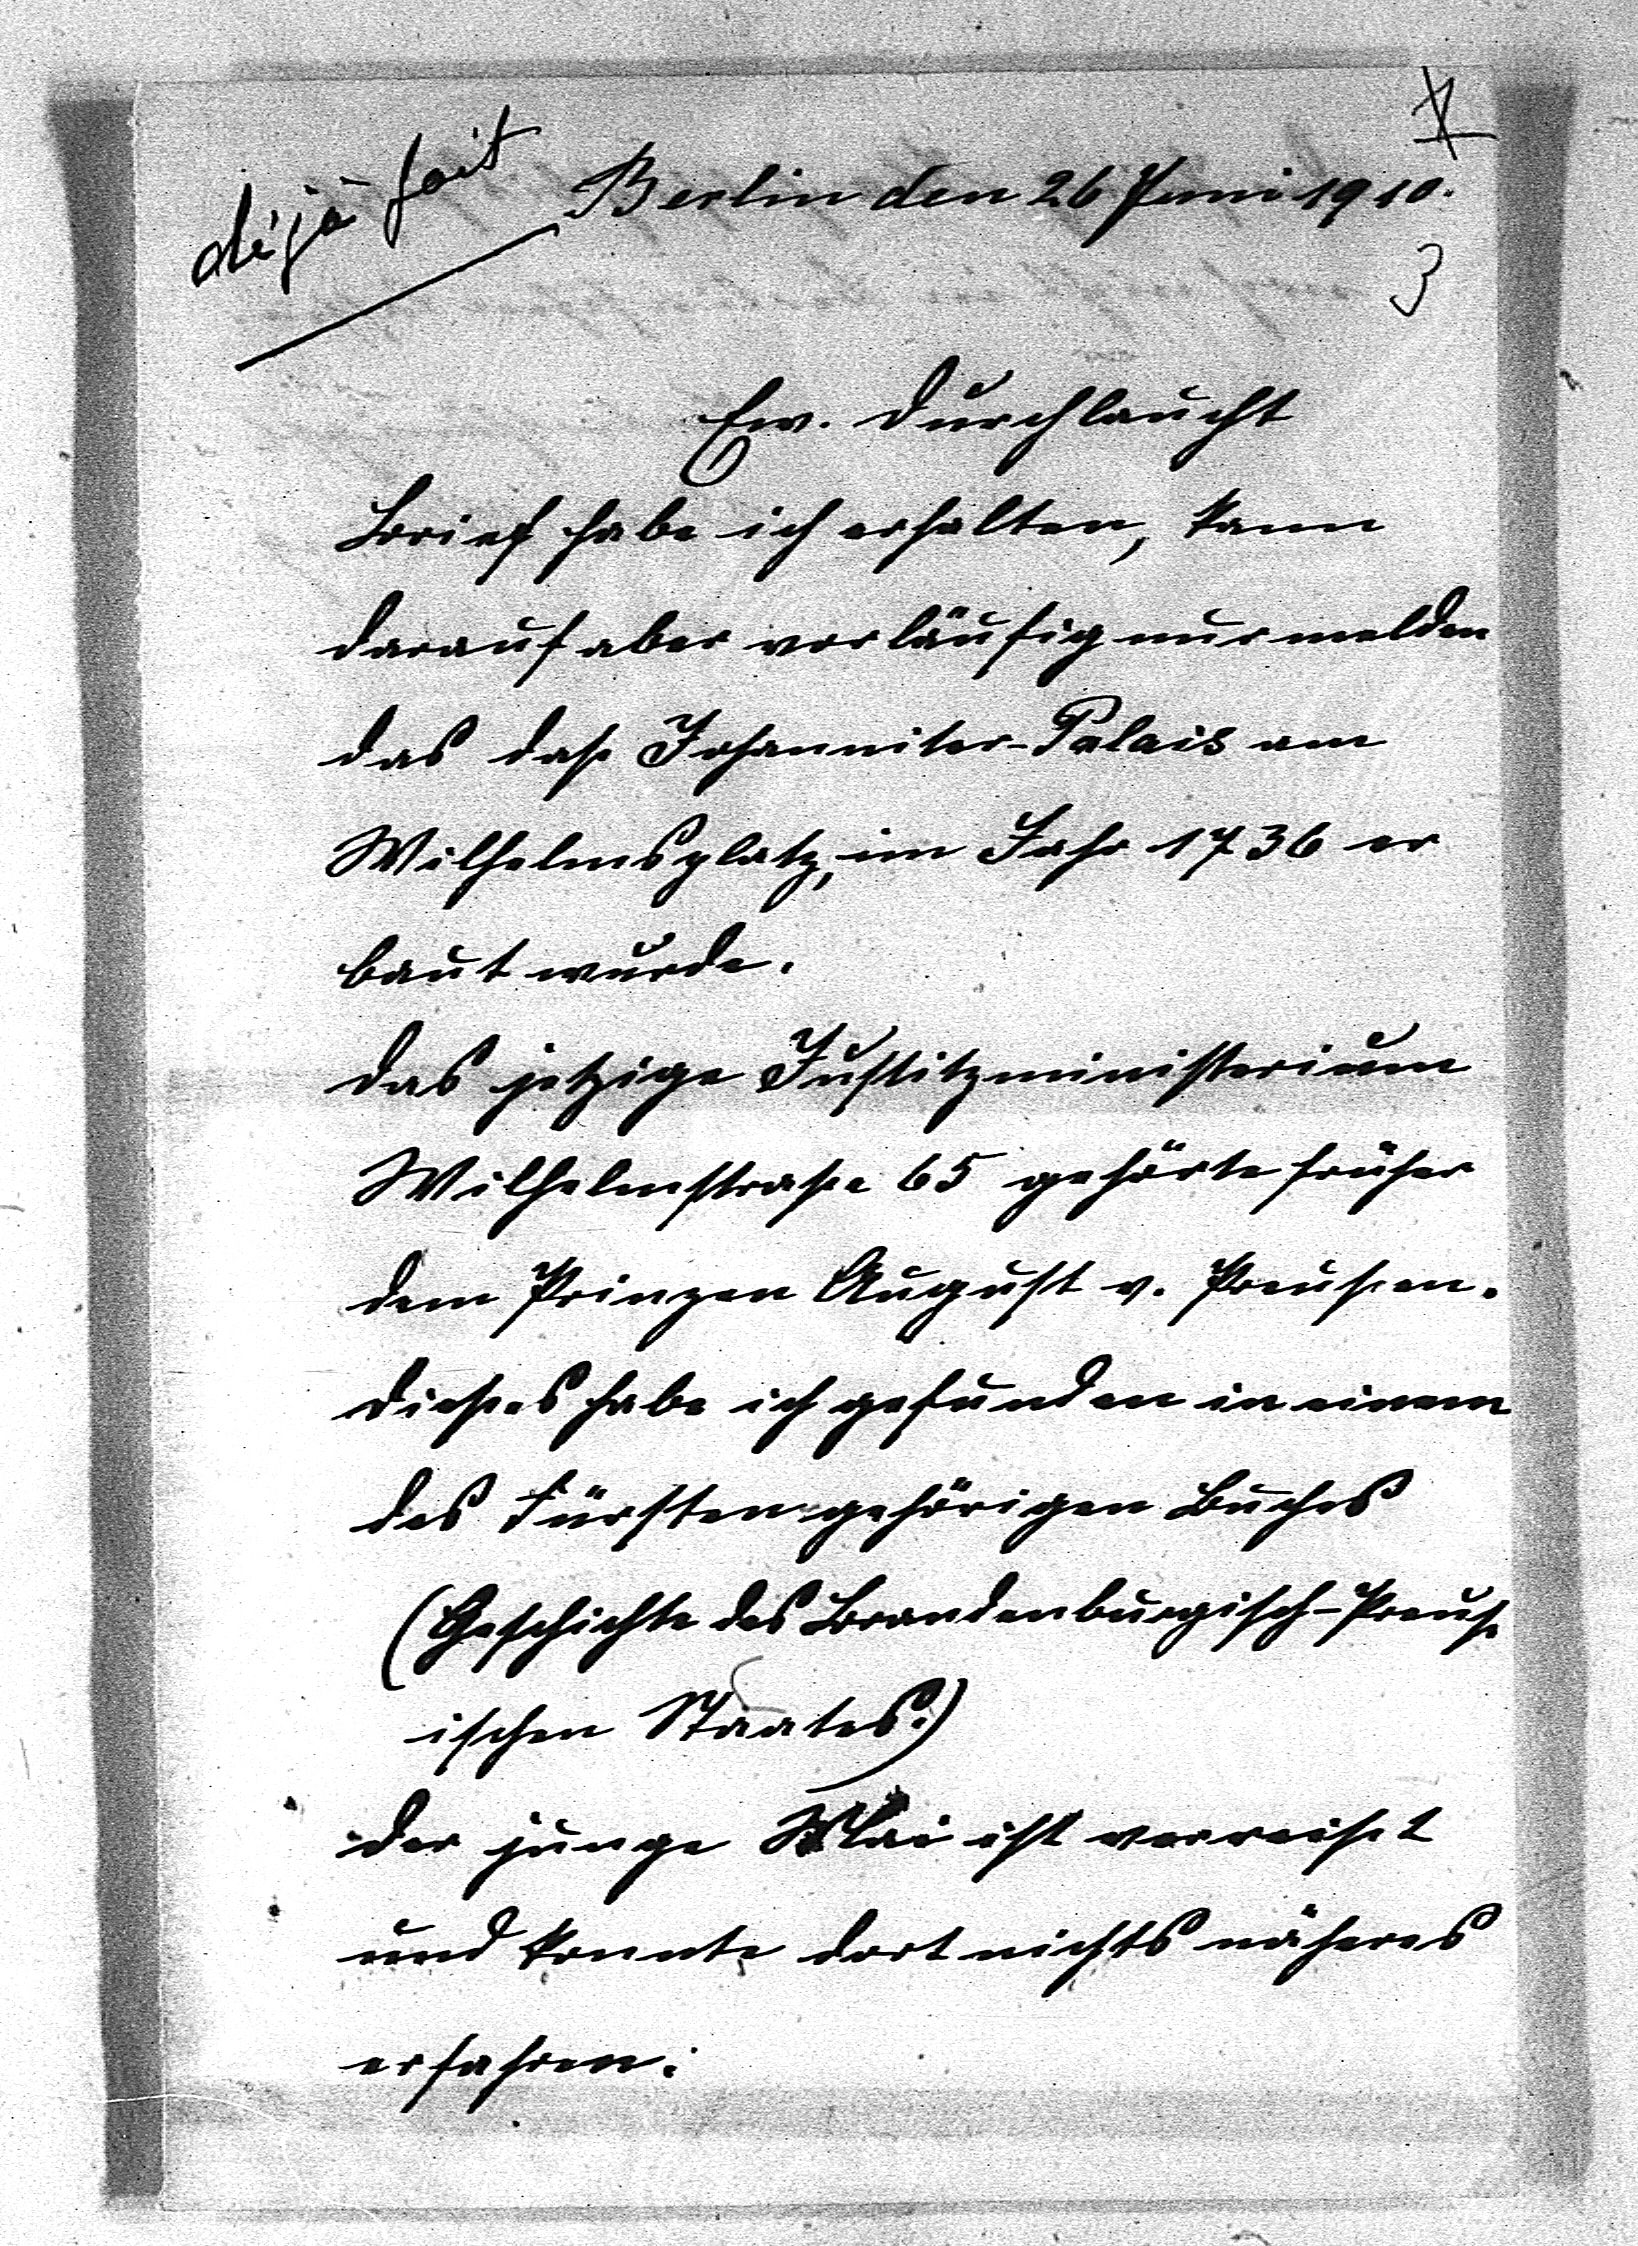 déjà fait
Berlin den 26 Juni 1910.
3
Ew. Durchlaucht
Brief habe ich erhalten, kann
darauf aber vorläufig nur melden
das daß Johanniter-Palais am
Wilhelmsplatz, im Jahr 1736 er
baut wurde.
Das jetzige Justitzministerium
Wilhelmstraße 65 gehörte früher
dem Prinzen August v. Preußen.
Dießes habe ich gefunden in einem
des Fürsten gehörigen Buches
(Geschichte des Brandenburgisch-Preuß
ischen Staates.)
Der junge ist verreißt
und konnte dort nichts näheres
erfahren.